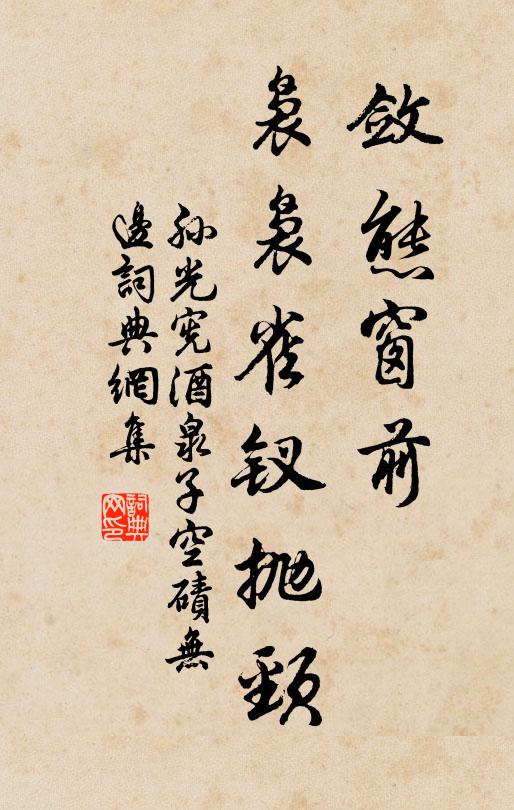 斂態窗前
裊裊雀釵抛頸
孫光憲酒泉子空磧無
邊詞典網集
詞典网印